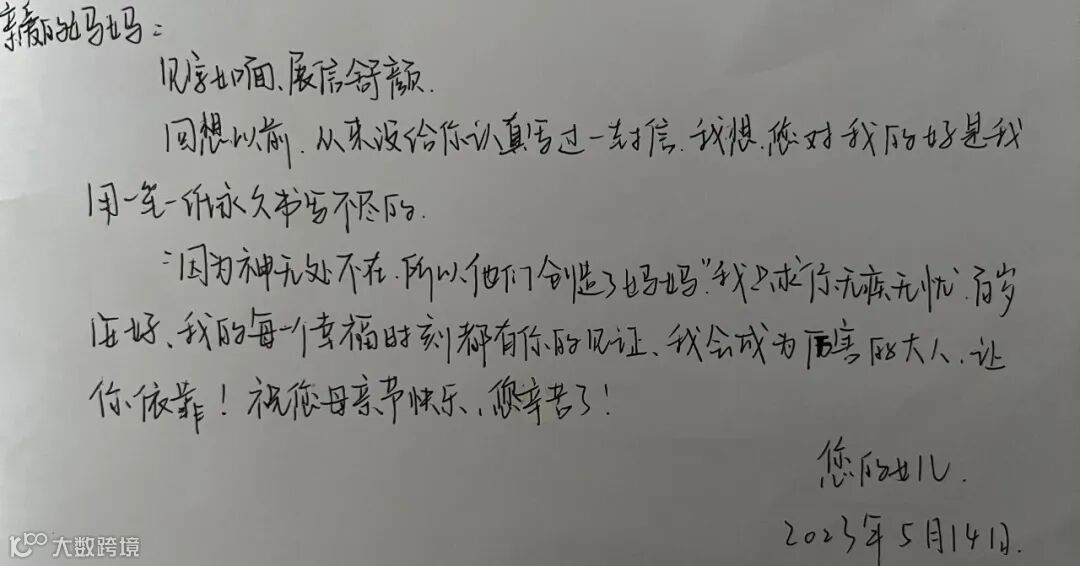 亲爱的妈妈:
见字如面、展信舒颜.
回想以前.从来没给你认真写过一封信.我想.您对我的好是我
用一笔一纸永久书写不尽的.
"因为神无处不在.所以他们创造了妈妈."我只求你无疾无忧.百岁
安好、我的每一个幸福时刻都有你的见证、我会成为厉害的大人、让
你依靠!祝您母亲节快乐、您辛苦了!
您的女儿.
2023年5月14日.
大数跨境